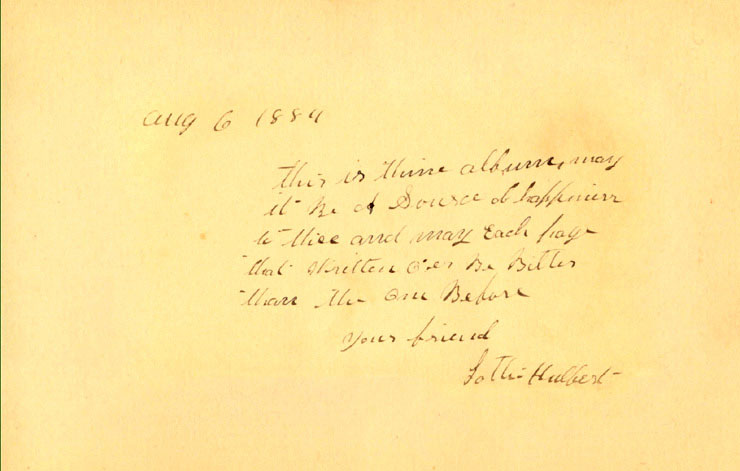 Aug 6 1884
this is thine album, may
it Be A Source of happiness
to thee and may Each page
that Written O'er Be Better
than the One Before
Your friend
Lottie Hulbert